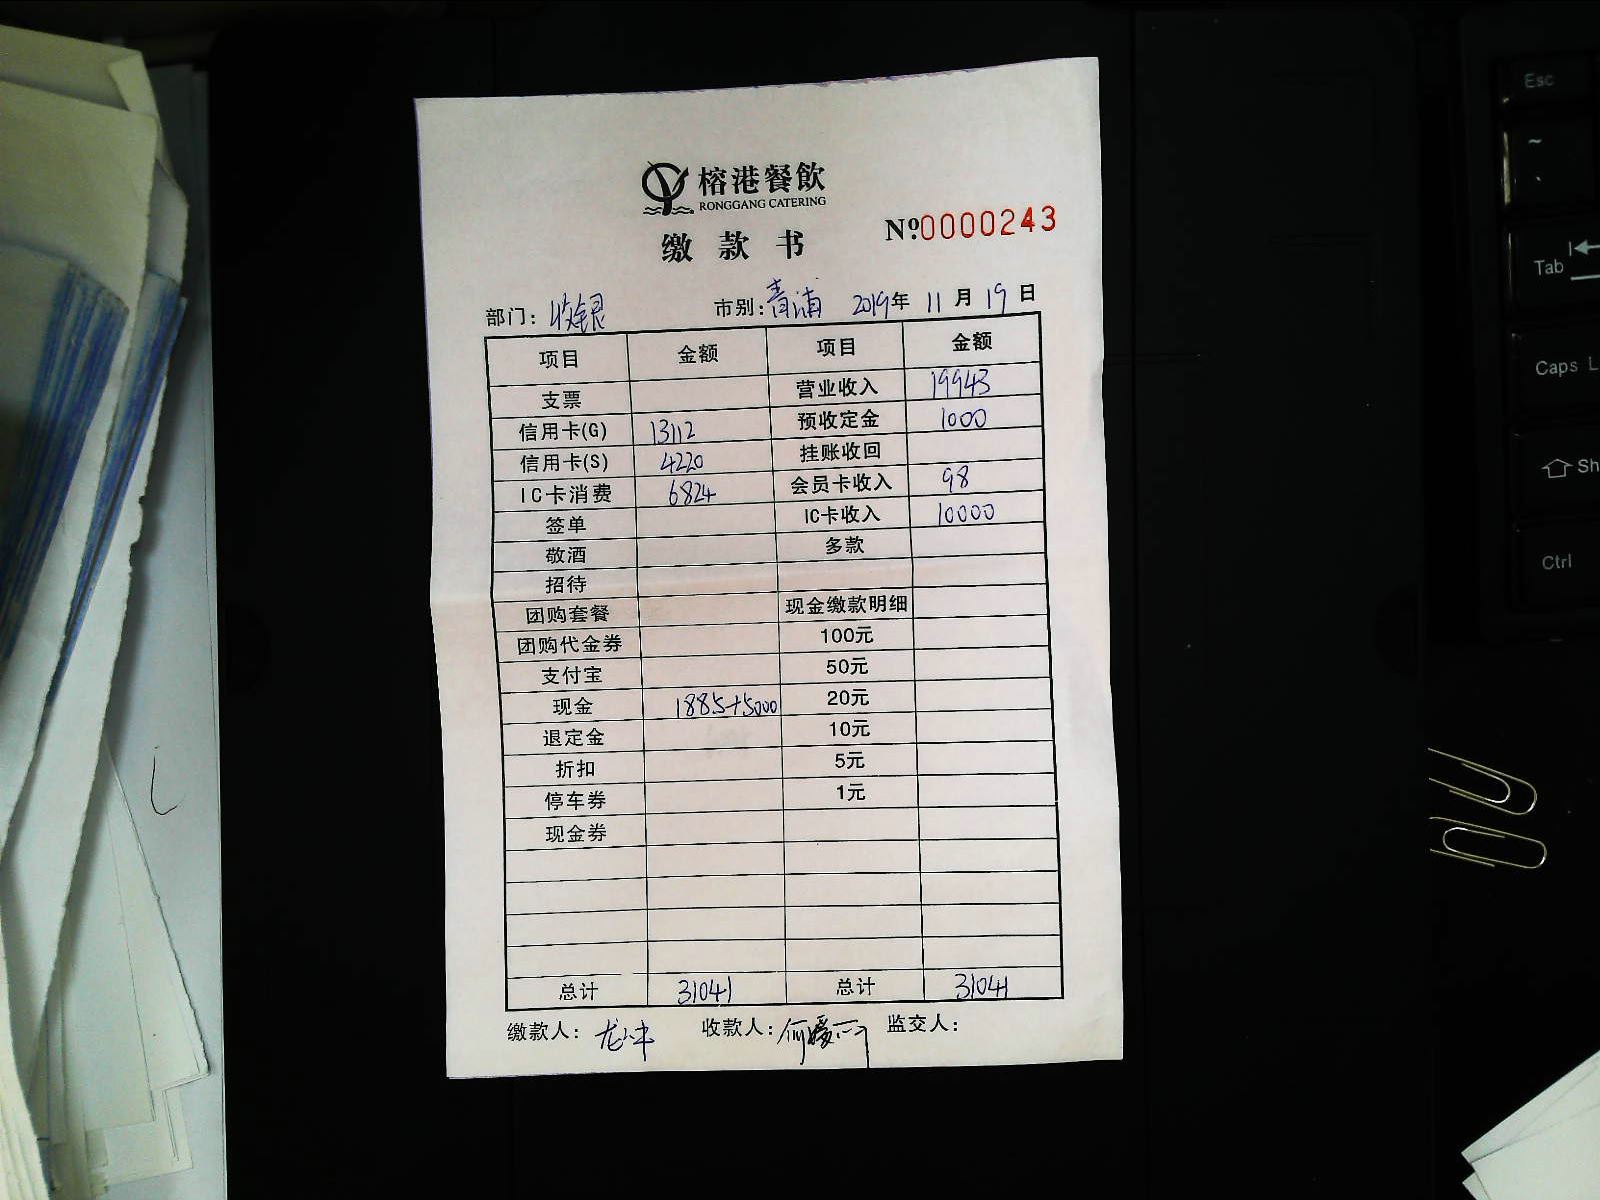 榕港餐飲
RONGGANG CATERING
缴款书
Nº:0000243
部门: 收银 市别: 青浦 2019年 11月 19日
项目 金额 项目 金额
支票 营业收入 19943
信用卡(G) 13112 预收定金 1000
信用卡(S) 4220 挂账收回
IC卡消费 6824 会员卡收入 98
签单 IC卡收入 10000
敬酒 多款
招待
团购套餐 现金缴款明细
团购代金券 100元
支付宝 50元
现金 1885+5000 20元
退定金 10元
折扣 5元
停车券 1元
现金券
总计 31041 总计 31041
缴款人: 收款人: 监交人:
Esc
~
Tab
Caps L
Sh
Ctrl